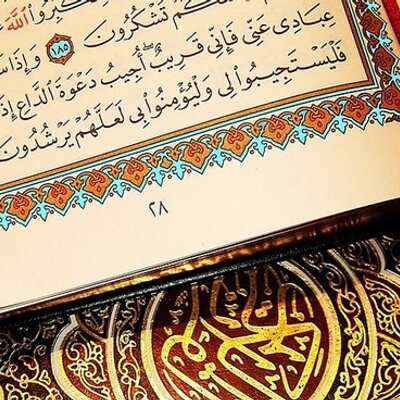 تَشْكُرُونَ ١٨٥ وَإِذَا سَ
عِبَادِى عَنِّى فَإِنِّى قَرِيبٌ أُجِيبُ دَعْوَةَ ٱلدَّاعِ إِذَ
فَلْيَسْتَجِيبُوا۟ لِى وَلْيُؤْمِنُوا۟ بِى لَعَلَّهُمْ يَرْشُدُونَ
٢٨